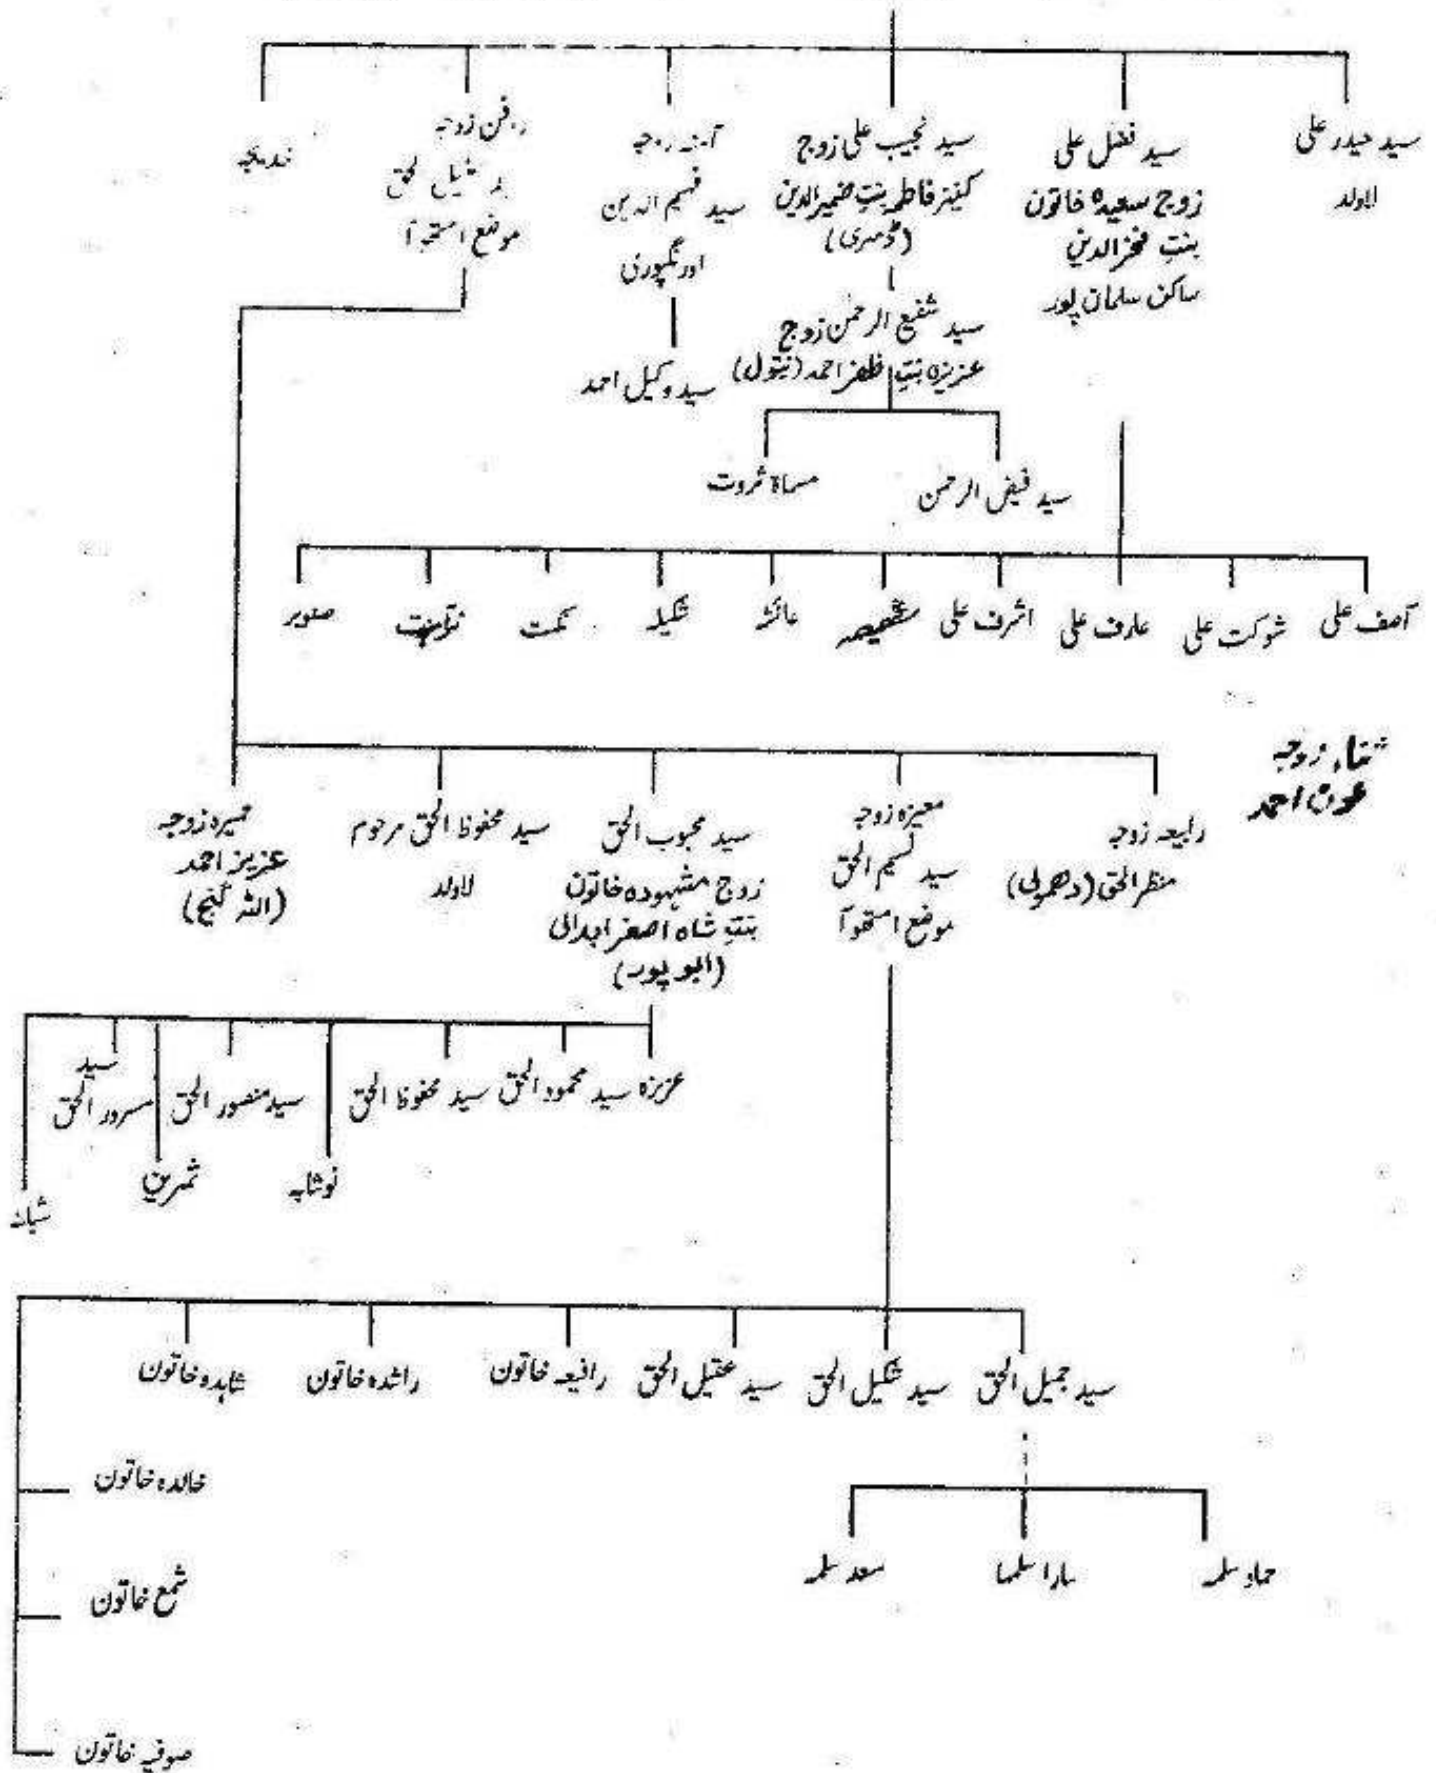 سید حیدر علی
لاولد
سید فضل علی
زوج سعیدہ خاتون
بنتِ فخرالدین
ساکن سلمان پور
سید نجیب علی زوج
کنیز فاطمہ بنتِ ضمیرالدین
(ڈمری)
سید شفیع الرحمن زوج
عزیزہ بنتِ ظفر احمد (نتول)
آمنہ زوجہ
سید فہیم الدین
اورنگپوری
سید وکیل احمد
زوجہ
الحق
موضع
خدیجہ
سید فیض الرحمن
مسماۃ ثروت
آصف علی
شوکت علی
عارف علی
اشرف علی
عائشہ
شکیلہ
نکہت
صنوبر
ثناء زوجہ
عون احمد
رابیعہ زوجہ
منظر الحق (دھمولی)
معیزہ زوجہ
سید نسیم الحق
موضع استھوآ
سید محبوب الحق
زوج مشہودہ خاتون
بنتِ شاہ اصغر ابدالی
(ابو پور)
سید محفوظ الحق مرحوم
لاولد
زوجہ
عزیز احمد
(اللہ گنج)
عزیزہ
سید محمود الحق
سید محفوظ الحق
سید منصور الحق
سید
مسرور الحق
نوشابہ
ثمرین
شبانہ
سید جمیل الحق
سید شکیل الحق
سید عقیل الحق
رافیعہ خاتون
راشدہ خاتون
شاہدہ خاتون
خالدہ خاتون
شمع خاتون
صوفیہ خاتون
حماد سلمہ
سارا سلمہا
سعد سلمہ